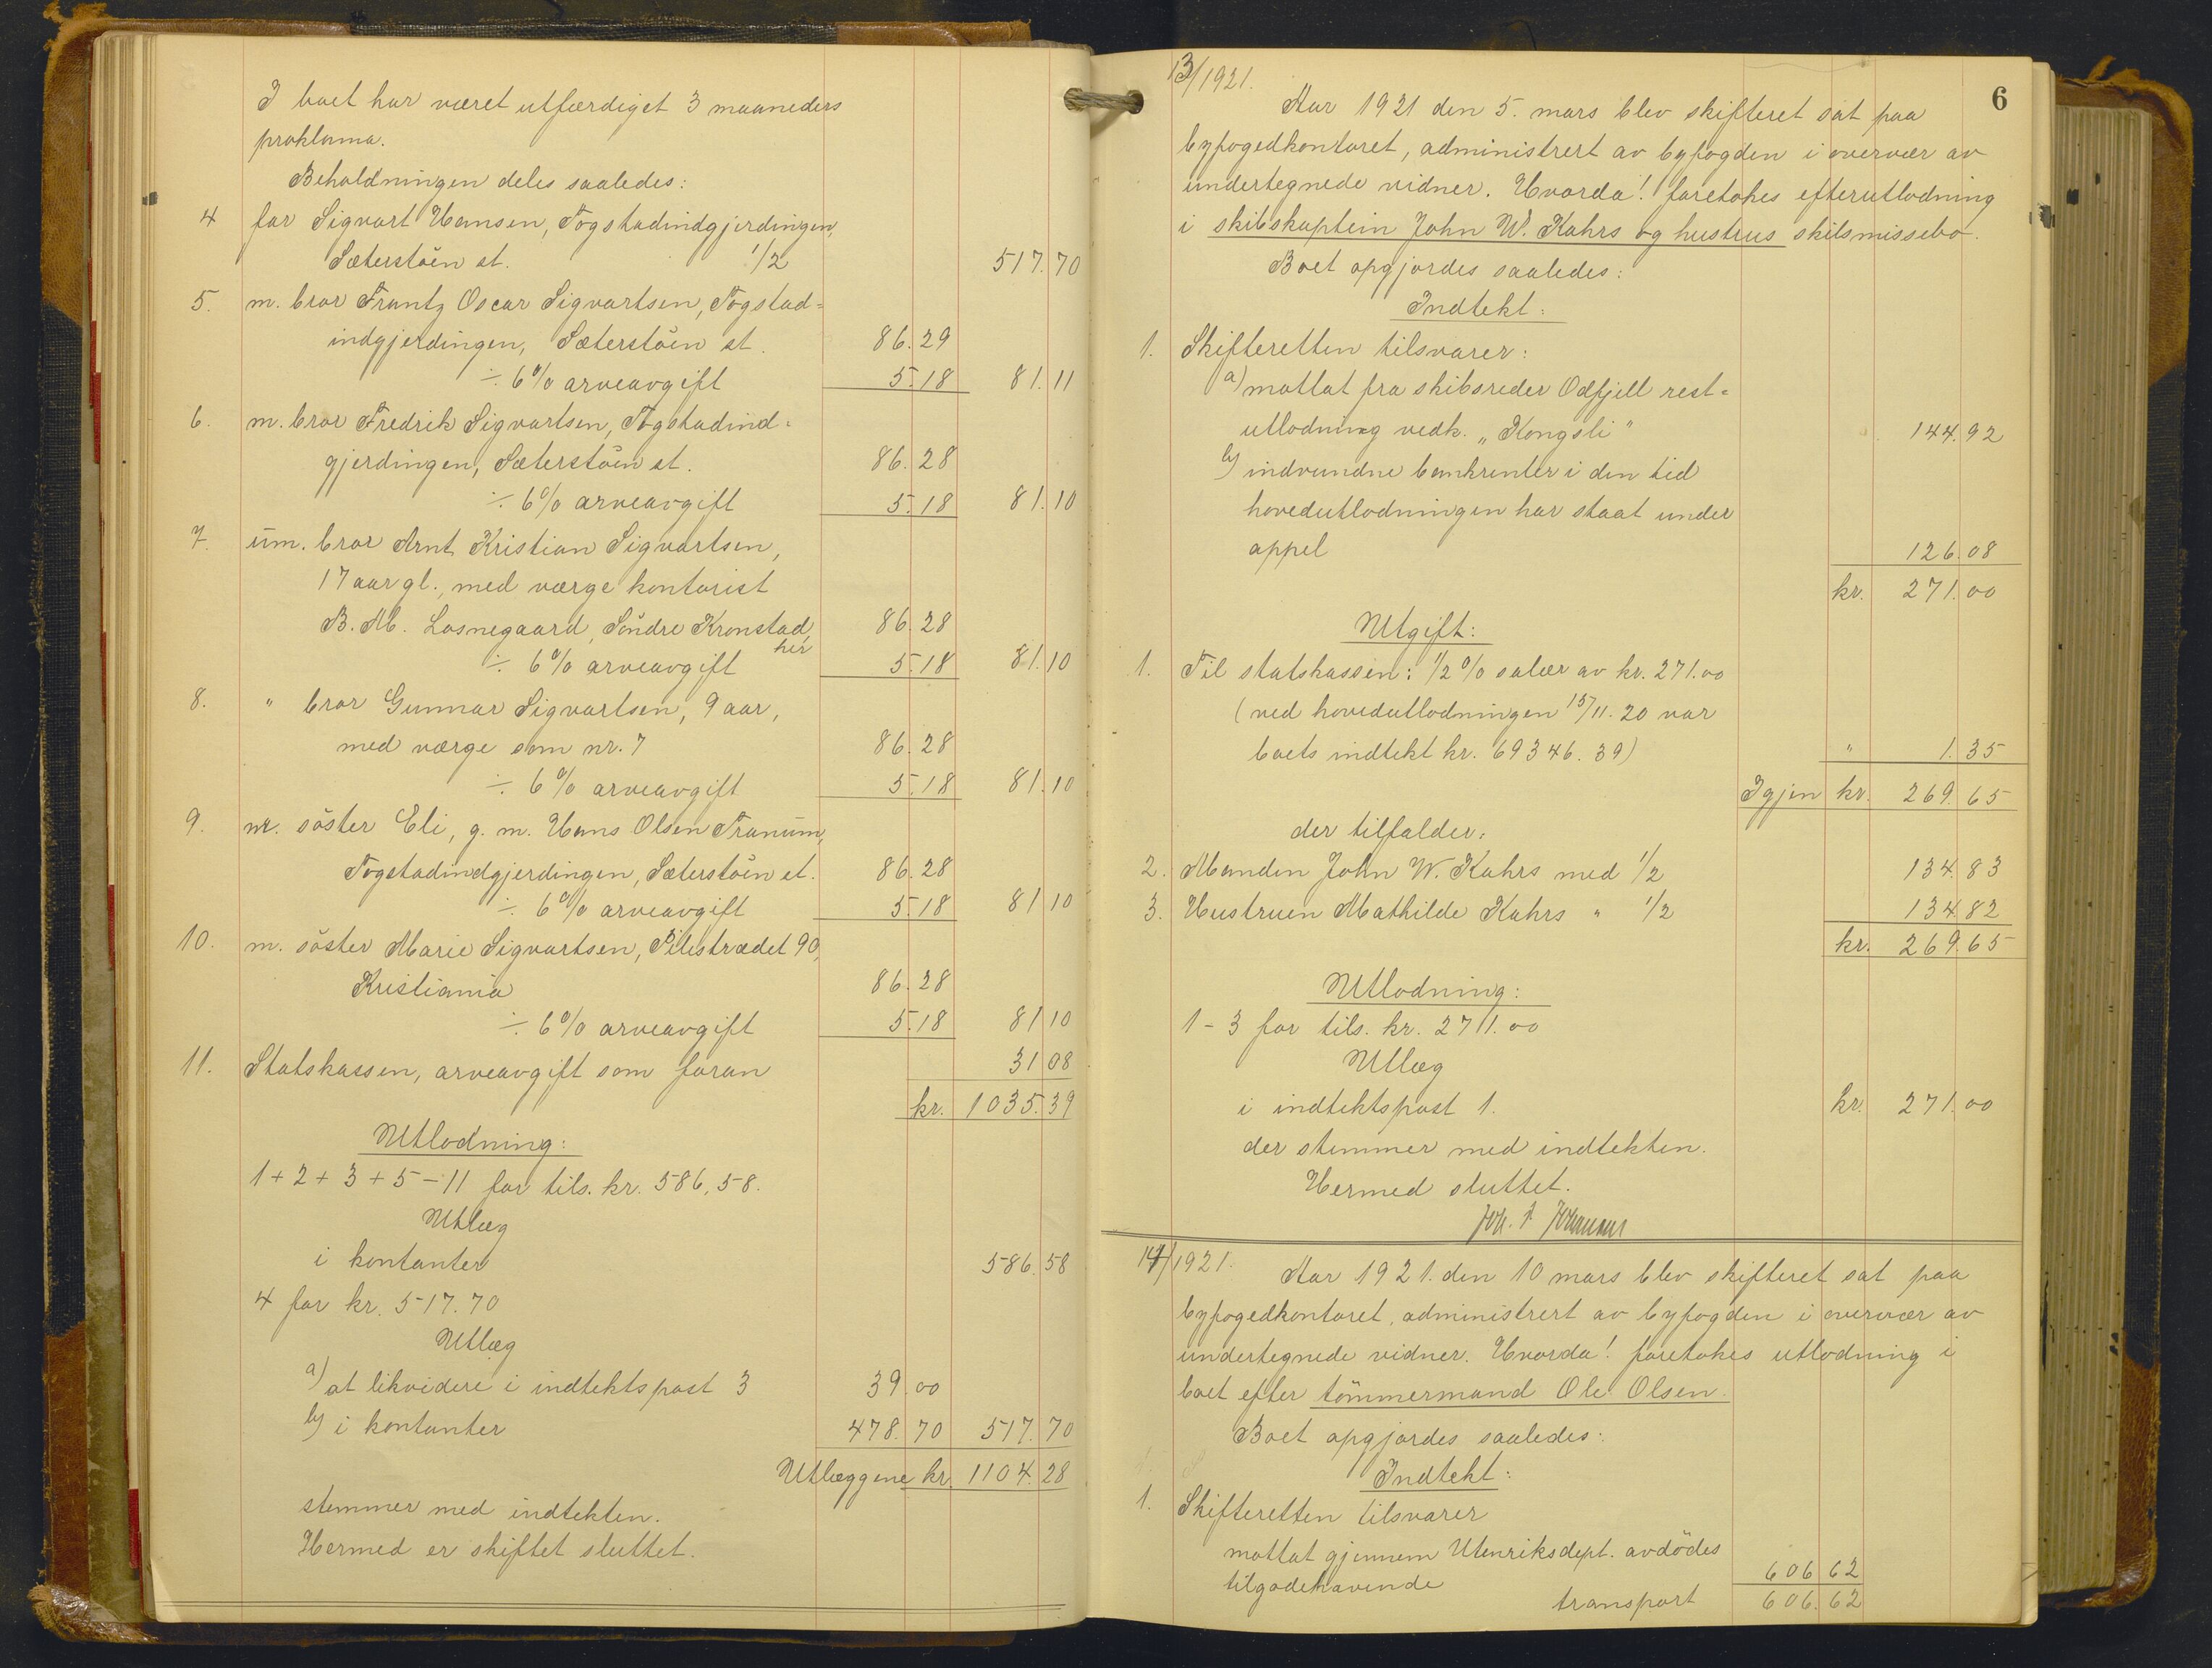 I boet har været utfærdiget 3 maaneders
proklama.
Beholdningen deles saaledes:
4 far Sigvart Hansen, Togstadindgjerdingen,
Sæterstöen st. 1/2 517.70
5. m. bror Frantz Oscar Sigvartsen, Togstad=
indgjerdingen, Sæterstöen st. 86.29
÷ 6% arveavgift 5.18 81.11
6. m. bror Fredrik Sigvartsen, Togstadind=
gjerdingen, Sæterstöen st. 86.28
÷ 6% arveavgift 5.18 81.10
7. um. bror Arnt Kristian Sigvartsen,
17 aar gl., med værge kontorist
B. M. Losnegaard, Söndre Kronstad, 86.28
her
÷ 6% arveavgift 5.18 81.10
8. " bror Gunnar Sigvartsen, 9 aar,
med værge som nr. 7 86.28
÷ 6% arveavgift 5.18 81.10
9. m. söster Eli, g. m. Hans Olsen Tranum,
Togstadindgjerdingen, Sæterstöen st. 86.28
÷ 6% arveavgift 5.18 81.10
10. m. söster Marie Sigvartsen, Pilestrædet 90,
Kristiania 86.28
÷ 6% arveavgift 5.18 81.10
11. Statskassen, arveavgift som foran 31.08
kr. 1035.39
Utlodning:
1+2+3+5-11 for tils. kr. 586,58.
Utlæg
i kontanter 586.58
4 for kr. 517.70
Utlæg
a) at likvidere i indtektspost 3 39.00
b) i kontanter 478.70 517.70
Utlæggene kr. 1104.28
stemmer med indtekten.
Hermed er skiftet sluttet.
6
13/1921.
Aar 1921 den 5. mars blev skifteret sat paa
byfogedkontoret, administrert av byfogden i overvær av
undertegnede vidner. Hvorda! foretokes efterutlodning
i skibskaptein John W. Kahrs og hustrus skilsmissebo.
Boet opgjordes saaledes:
Indtekt:
1. Skifteretten tilsvarer:
a) mottat fra skibsreder Odfjell rest=
utlodning vedk. „Kongsli" 144.92
b) indvundne bankrenter i den tid
hovedutlodningen har staat under
appel 126.08
kr. 271.00
Utgift:
1. Til statskassen: 1/2% salær av kr. 271.00
(ved hovedutlodningen 15/11.20 var
boets indtekt kr. 69346.39) " 1.35
Igjen kr. 269.65
der tilfalder:
2. Manden John W. Kahrs med 1/2 134.83
3. Hustruen Mathilde Kahrs " 1/2 134.82
kr. 269.65
Utlodning:
1-3 for tils. kr. 271.00
Utlæg
i indtektspost 1. kr. 271.00
der stemmer med indtekten.
Hermed sluttet.
14/1921.
Aar 1921. den 10 mars blev skifteret sat paa
byfogedkontoret, administrert av byfogden i overvær av
undertegnede vidner. Hvorda! foretokes utlodning i
boet efter tömmermand Ole Olsen.
Boet opgjordes saaledes:
Indtekt:
1. Skifteretten tilsvarer
mottat gjennem Utenriksdept. avdödes
tilgodehavende 606.62
transport 606.62